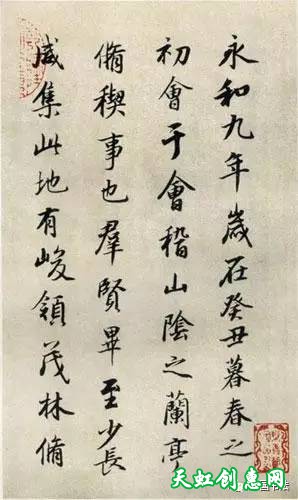 永和九年歲在癸丑暮春之
初會于會稽山陰之蘭亭
脩稧事也羣賢畢至少長
咸集此地有峻領茂林脩
书法
天虹创意网